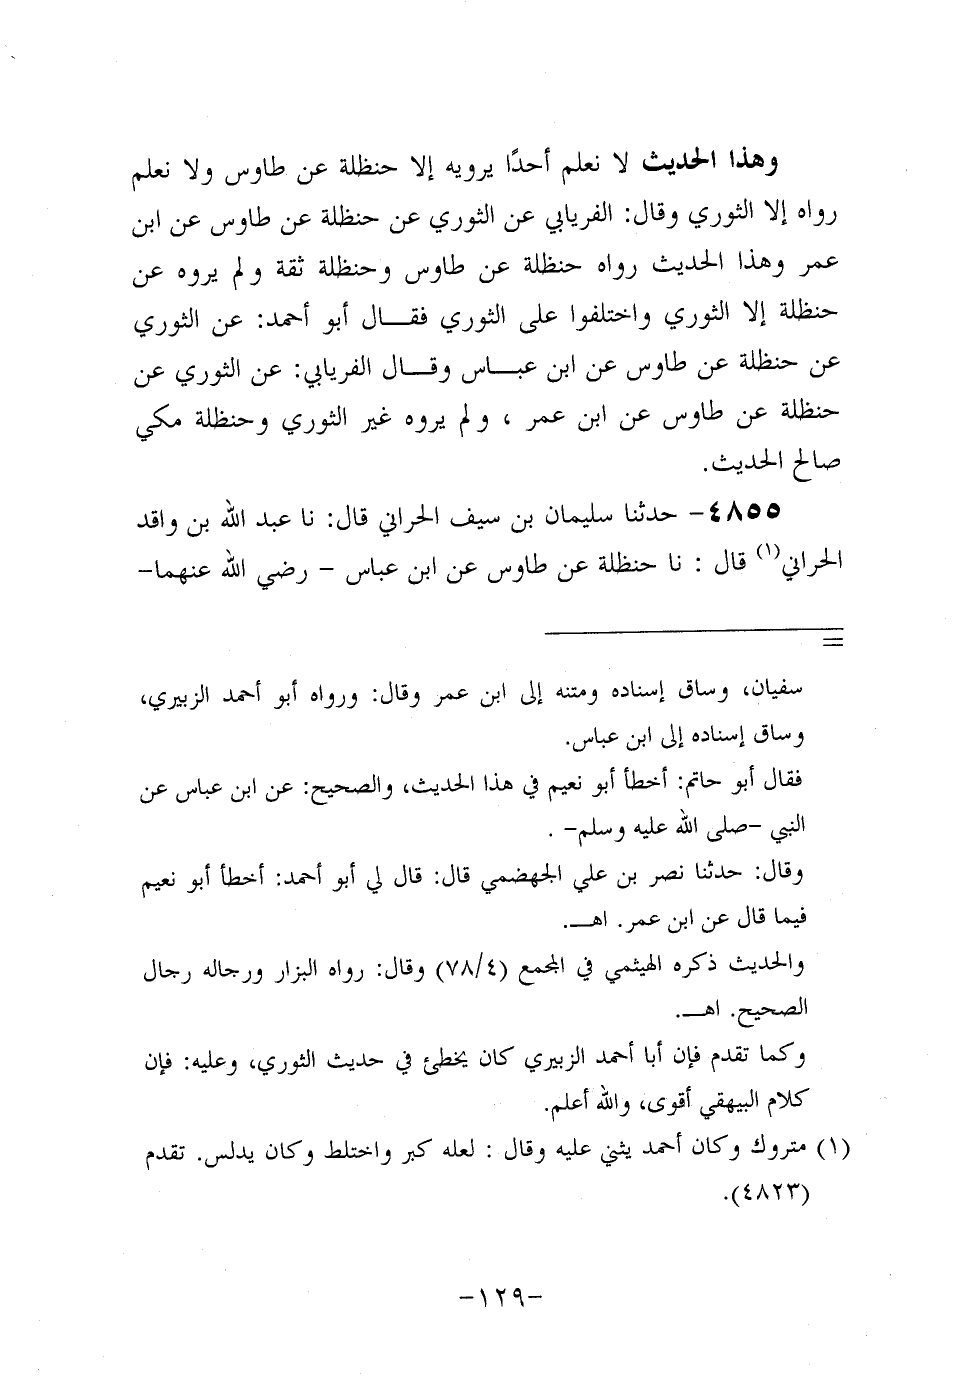 وهذا الحديث لا نعلم أحدًا يرويه إلا حنظلة عن طاوس ولا نعلم
رواه إلا الثوري وقال: الفريابي عن الثوري عن حنظلة عن طاوس عن ابن
عمر وهذا الحديث رواه حنظلة عن طاوس وحنظلة ثقة ولم يروه عن
حنظلة إلا الثوري واختلفوا على الثوري فقـــال أبو أحمد: عن الثوري
عن حنظلة عن طاوس عن ابن عبـــاس وقـــال الفريابي: عن الثوري عن
حنظلة عن طاوس عن ابن عمر ، ولم يروه غير الثوري وحنظلة مكي
صالح الحديث.
٤٨٥٥- حدثنا سليمان بن سيف الحراني قال: نا عبد الله بن واقد
الحراني(١) قال : نا حنظلة عن طاوس عن ابن عباس - رضي الله عنهما-
=
سفيان، وساق إسناده ومتنه إلى ابن عمر وقال: ورواه أبو أحمد الزبيري،
وساق إسناده إلى ابن عباس.
فقال أبو حاتم: أخطأ أبو نعيم في هذا الحديث، والصحيح: عن ابن عباس عن
النبي -صلى الله عليه وسلم- .
وقال: حدثنا نصر بن علي الجهضمي قال: قال لي أبو أحمد: أخطأ أبو نعيم
فيما قال عن ابن عمر. اهـــ.
والحديث ذكره الهيثمي في المجمع (٧٨/٤) وقال: رواه البزار ورجاله رجال
الصحيح. اهـــ.
وكما تقدم فإن أبا أحمد الزبيري كان يخطئ في حديث الثوري، وعليه: فإن
كلام البيهقي أقوى، والله أعلم.
(١) متروك وكان أحمد يثني عليه وقال : لعله كبر واختلط وكان يدلس. تقدم
(٤٨٢٣).
-١٢٩-